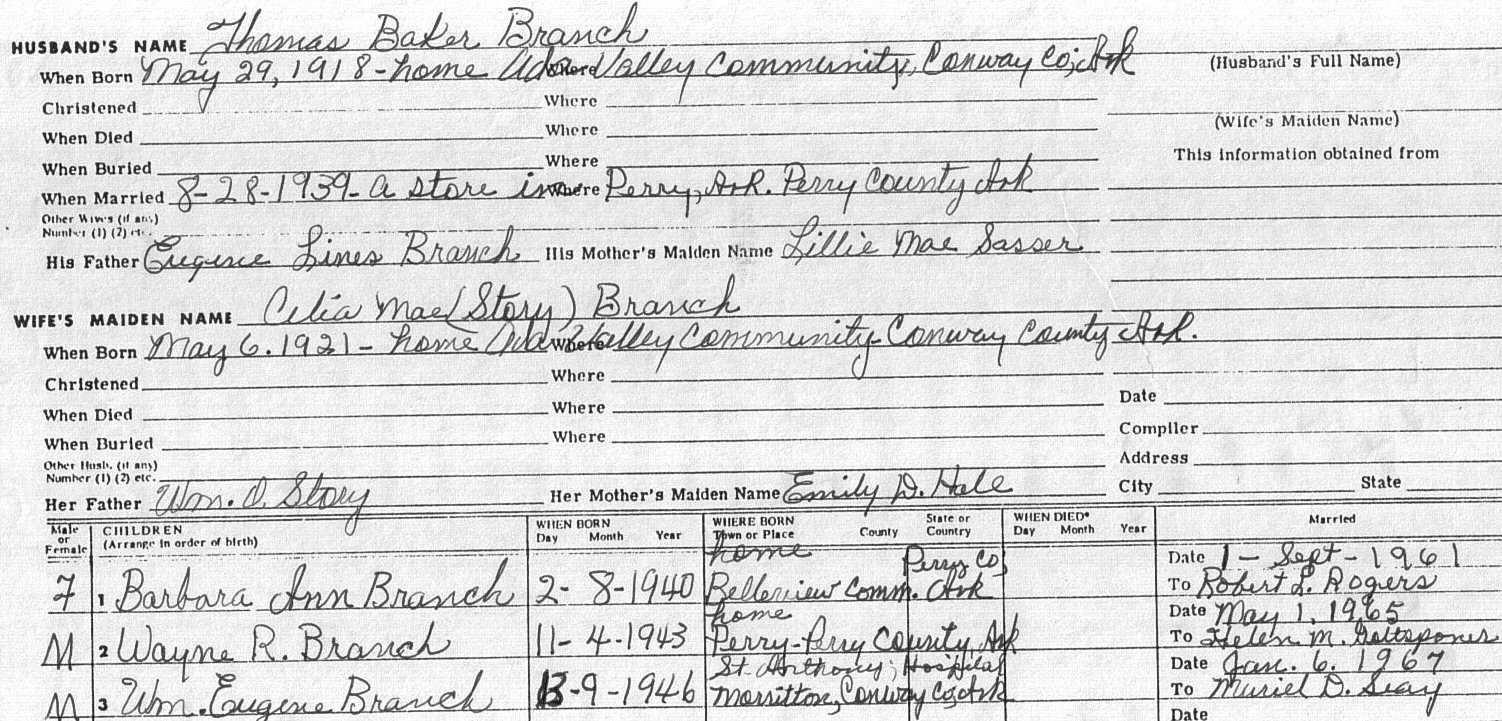 HUSBAND'S NAME Thomas Baker Branch
When Born May 29, 1918 - home Ada Valley Community, Conway Co; Ark Where (Husband's Full Name)
Christened Where
When Died Where (Wife's Maiden Name)
When Buried Where This Information obtained from
When Married 8-28-1939 - a store in Where Perry, Ark. Perry County Ark
Other Wives (if any)
Number (1) (2) etc.
His Father Eugene Lines Branch His Mother's Maiden Name Lillie Mae Sasser
WIFE'S MAIDEN NAME Celia Mae (Story) Branch
When Born May 6. 1921 - home Ada Valley Community - Conway County Ark. Where
Christened Where
When Died Where Date
When Buried Where Compiler
Other Husb. (if any) Address
Number (1) (2) etc.
Her Father Wm. O. Story Her Mother's Maiden Name Emily D. Hale City State
Male or Female CHILDREN (Arrange in order of birth) WHEN BORN Day Month Year WHERE BORN Town or Place County State or Country WHEN DIED* Day Month Year Married
F 1 Barbara Ann Branch 2-8-1940 home Belleview Comm. Perry Co, Ark Date 1-Sept-1961 To Robert L. Rogers
M 2 Wayne R. Branch 11-4-1943 home Perry-Perry County, Ark Date May 1, 1965 To Helen M.
M 3 Wm. Eugene Branch -9-1946 St. Anthony; Hospital Morrilton, Conway Co, Ark Date Jan. 6. 1967 To Muriel D. Seay
Date